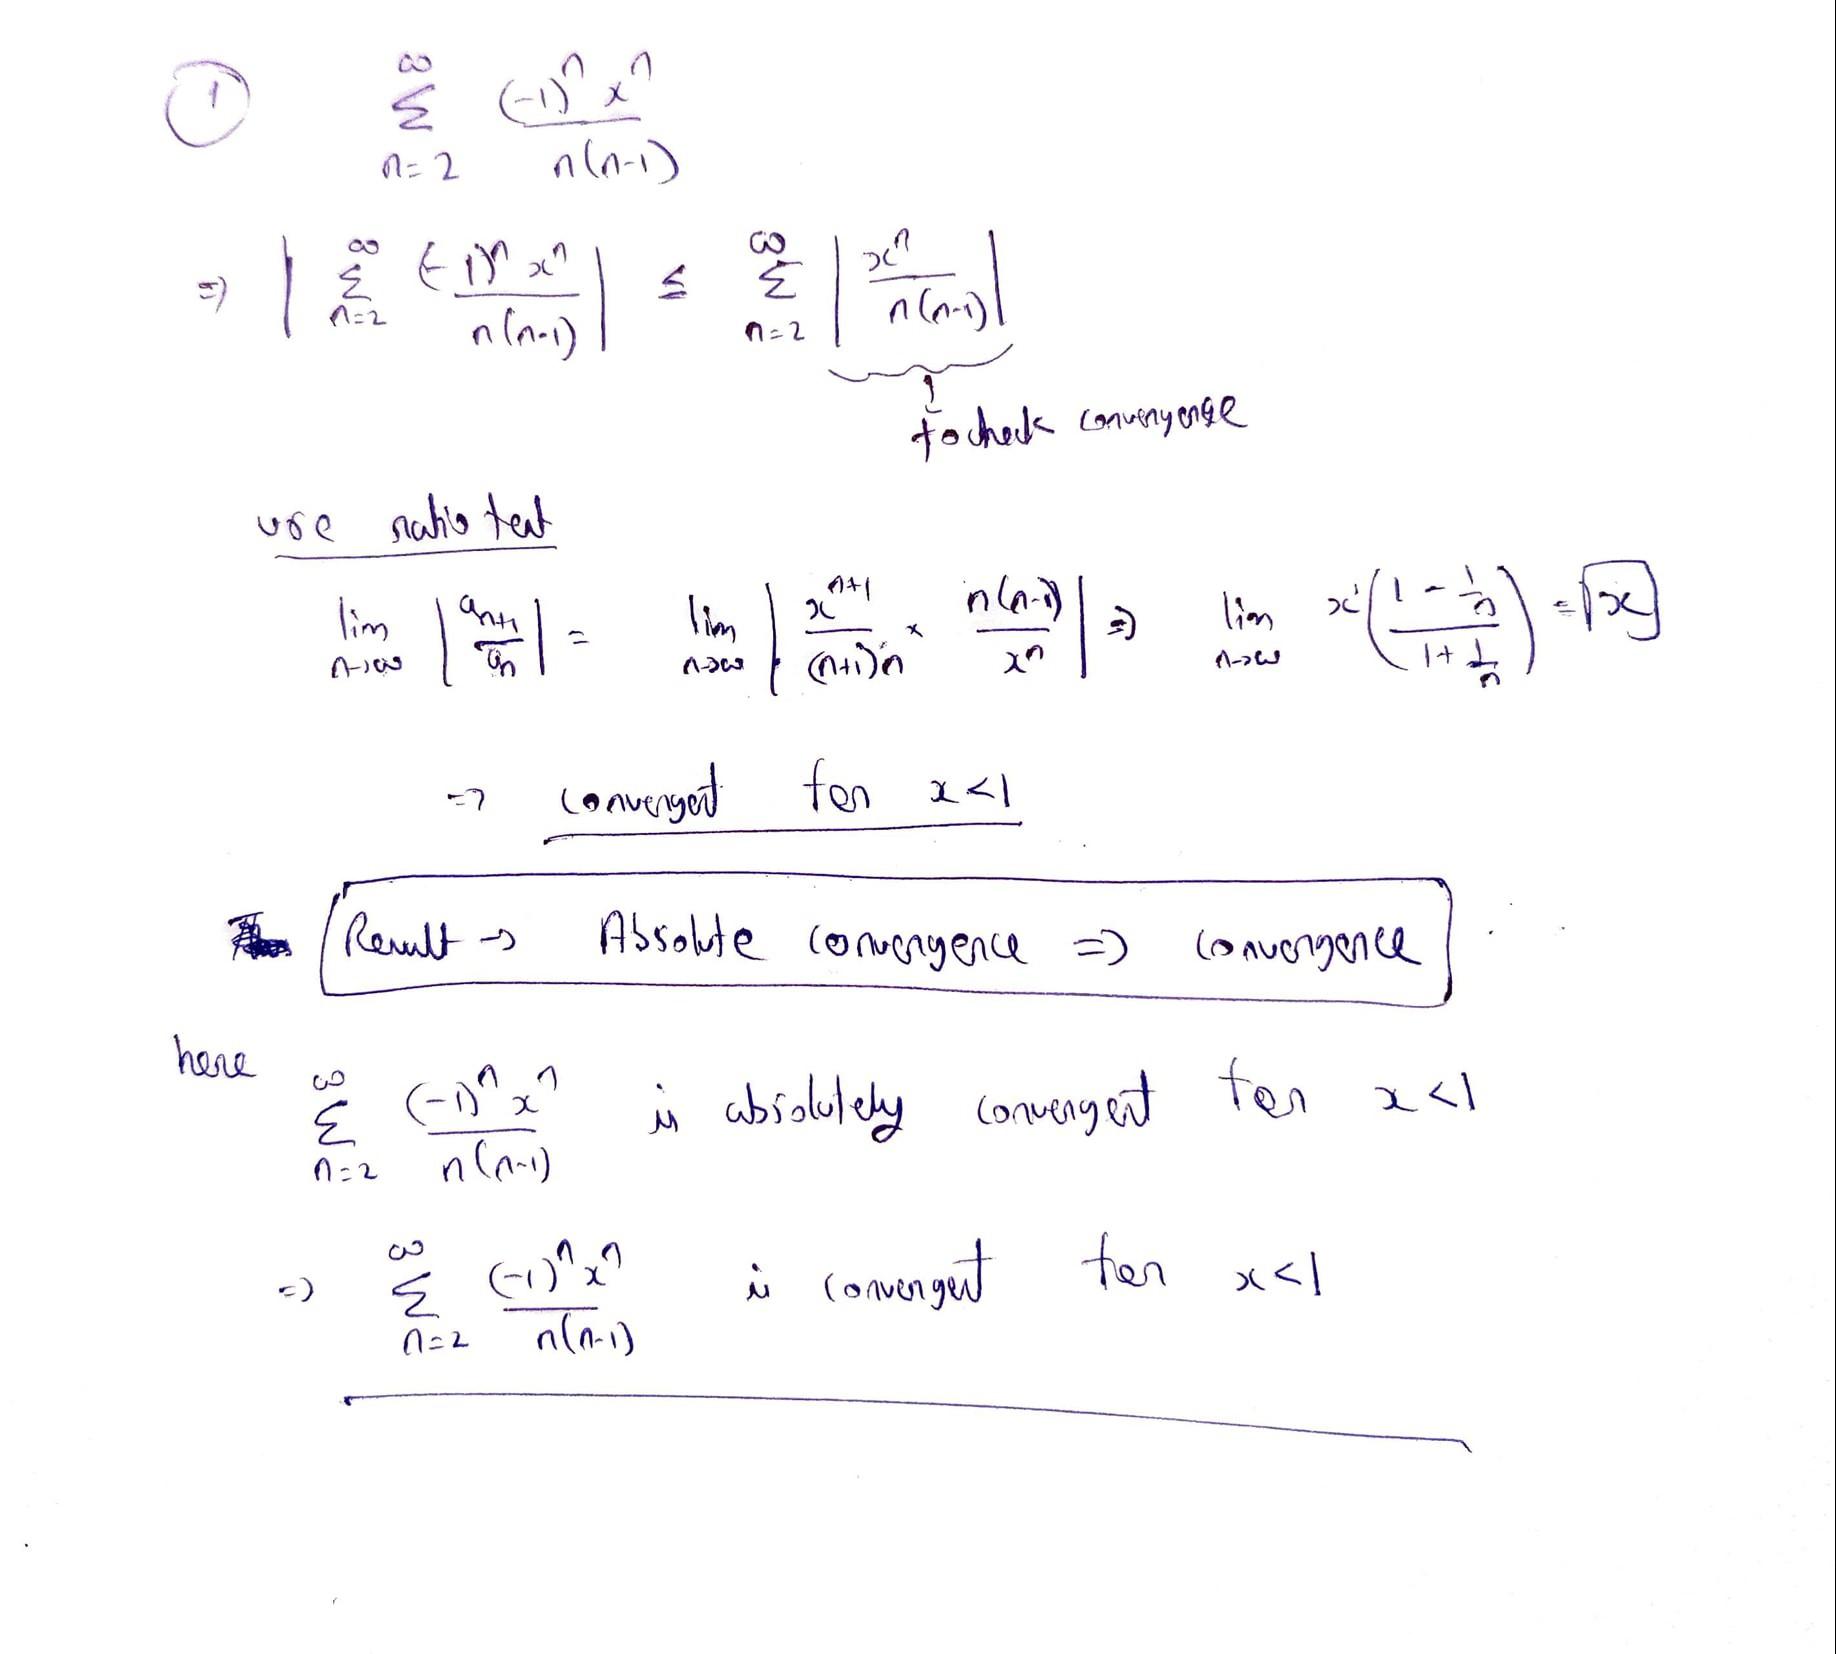 ① ∞ Σ n=2 (-1)^n x^n / n(n-1)
=> | ∞ Σ n=2 (-1)^n x^n / n(n-1) | ≤ ∞ Σ n=2 | x^n / n(n-1) |
to check convergence
use ratio test
lim n→∞ | a_{n+1} / a_n | = lim n→∞ | x^{n+1} / (n+1)n × n(n-1) / x^n | => lim n→∞ x ( 1 - 1/n / 1 + 1/n ) = x
=> convergent for x<1
Result → Absolute convergence => convergence
here ∞ Σ n=2 (-1)^n x^n / n(n-1) is absolutely convergent for x<1
=> ∞ Σ n=2 (-1)^n x^n / n(n-1) is convergent for x<1